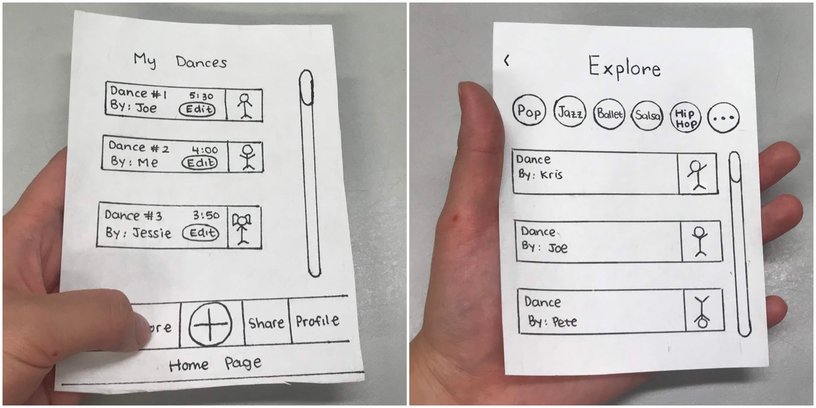 My Dances
Dance #1 5:30
By: Joe Edit
Dance #2 4:00
By: Me Edit
Dance #3 3:50
By: Jessie Edit
Share Profile
Home Page
<
Explore
Pop Jazz Ballet Salsa Hip Hop ...
Dance
By: Kris
Dance
By: Joe
Dance
By: Pete